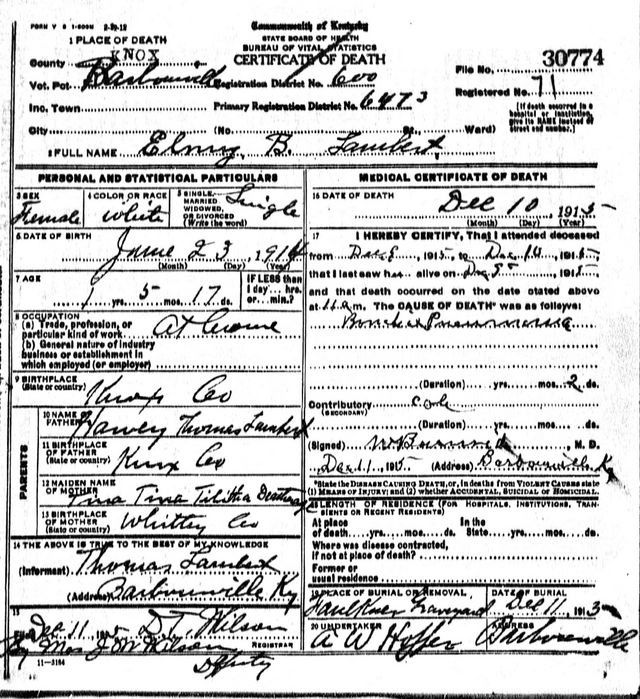 FORM V S 1-500M 2-29-12
Commonwealth of Kentucky
STATE BOARD OF HEALTH
BUREAU OF VITAL STATISTICS
CERTIFICATE OF DEATH
1 PLACE OF DEATH
County KNOX
Vot. Pct Barbourville Registration District No. 600
Inc. Town Primary Registration District No. 6473
City (No. St., Ward)
File No. 30774
Registered No. 71
[If death occurred in a hospital or institution, give its NAME instead of street and number.]
2 FULL NAME Elmy B. Lambert
PERSONAL AND STATISTICAL PARTICULARS
3 SEX Female
4 COLOR OR RACE White
5 SINGLE, MARRIED, WIDOWED, OR DIVORCED (Write the word) Single
6 DATE OF BIRTH June 23, 1914
(Month) (Day) (Year)
7 AGE 1 yrs. 5 mos. 17 ds.
IF LESS than 1 day... hrs. or... min.?
8 OCCUPATION
(a) Trade, profession, or particular kind of work At home
(b) General nature of industry business or establishment in which employed (or employer)
9 BIRTHPLACE (State or country) Knox Co
PARENTS
10 NAME OF FATHER Harvey Thomas Lambert
11 BIRTHPLACE OF FATHER (State or country) Knox Co
12 MAIDEN NAME OF MOTHER Tina Tilitha
13 BIRTHPLACE OF MOTHER (State or country) Whitley Co
14 THE ABOVE IS TRUE TO THE BEST OF MY KNOWLEDGE
(Informant) Thomas Lambert
(Address) Barbourville Ky
15
Filed Dec 11, 1915 D.T. Wilson
REGISTRAR
By Mrs J M Wilson
Deputy
11-3184
MEDICAL CERTIFICATE OF DEATH
16 DATE OF DEATH Dec 10 1915
(Month) (Day) (Year)
17 I HEREBY CERTIFY, That I attended deceased
from Dec 8, 1915 to Dec 10, 1915
that I last saw h alive on Dec 9, 1915
and that death occurred on the date stated above
at 11 a.m. The CAUSE OF DEATH* was as follows:
Bronchial Pneumonia
(Duration) yrs. mos. 2 ds.
Contributory (SECONDARY)
(Duration) yrs. mos. ds.
(Signed) M. D.
Dec 11, 1915 (Address) Barbourville, Ky
*State the DISEASE CAUSING DEATH, or, in deaths from VIOLENT CAUSES state
(1) MEANS OF INJURY; and (2) whether ACCIDENTAL, SUICIDAL OR HOMICIDAL.
18 LENGTH OF RESIDENCE (FOR HOSPITALS, INSTITUTIONS, TRANSIENTS OR RECENT RESIDENTS)
At place of death yrs. mos. ds. In the State yrs. mos. ds.
Where was disease contracted, if not at place of death?
Former or usual residence
19 PLACE OF BURIAL OR REMOVAL Faulkner Graveyard
DATE OF BURIAL Dec 11, 1915
20 UNDERTAKER A W Hopper
ADDRESS Barbourville